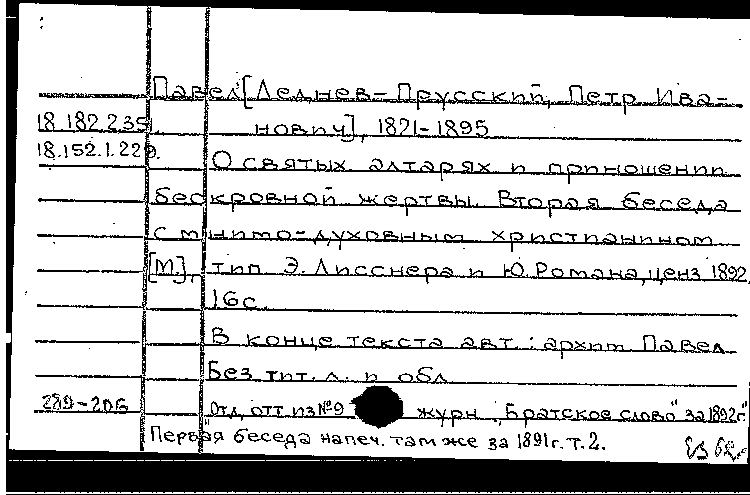 Павел [Леднев-Прусский, Петр Ива-
18.182.2.35.
нович], 1821-1895
18.152.1.229.
О святых алтарях и приношении
бескровной жертвы. Вторая беседа
с мнимо-духовным христианином
[М.], тип. Э. Лисснера и Ю. Романа, ценз. 1892.
16 с.
В конце текста авт.: архим. Павел
Без тит. л. и обл.
Отд. отт. из №9 журн. "Братское слово" за 1892 г.
Первая беседа напеч. там же за 1891 г. т. 2.